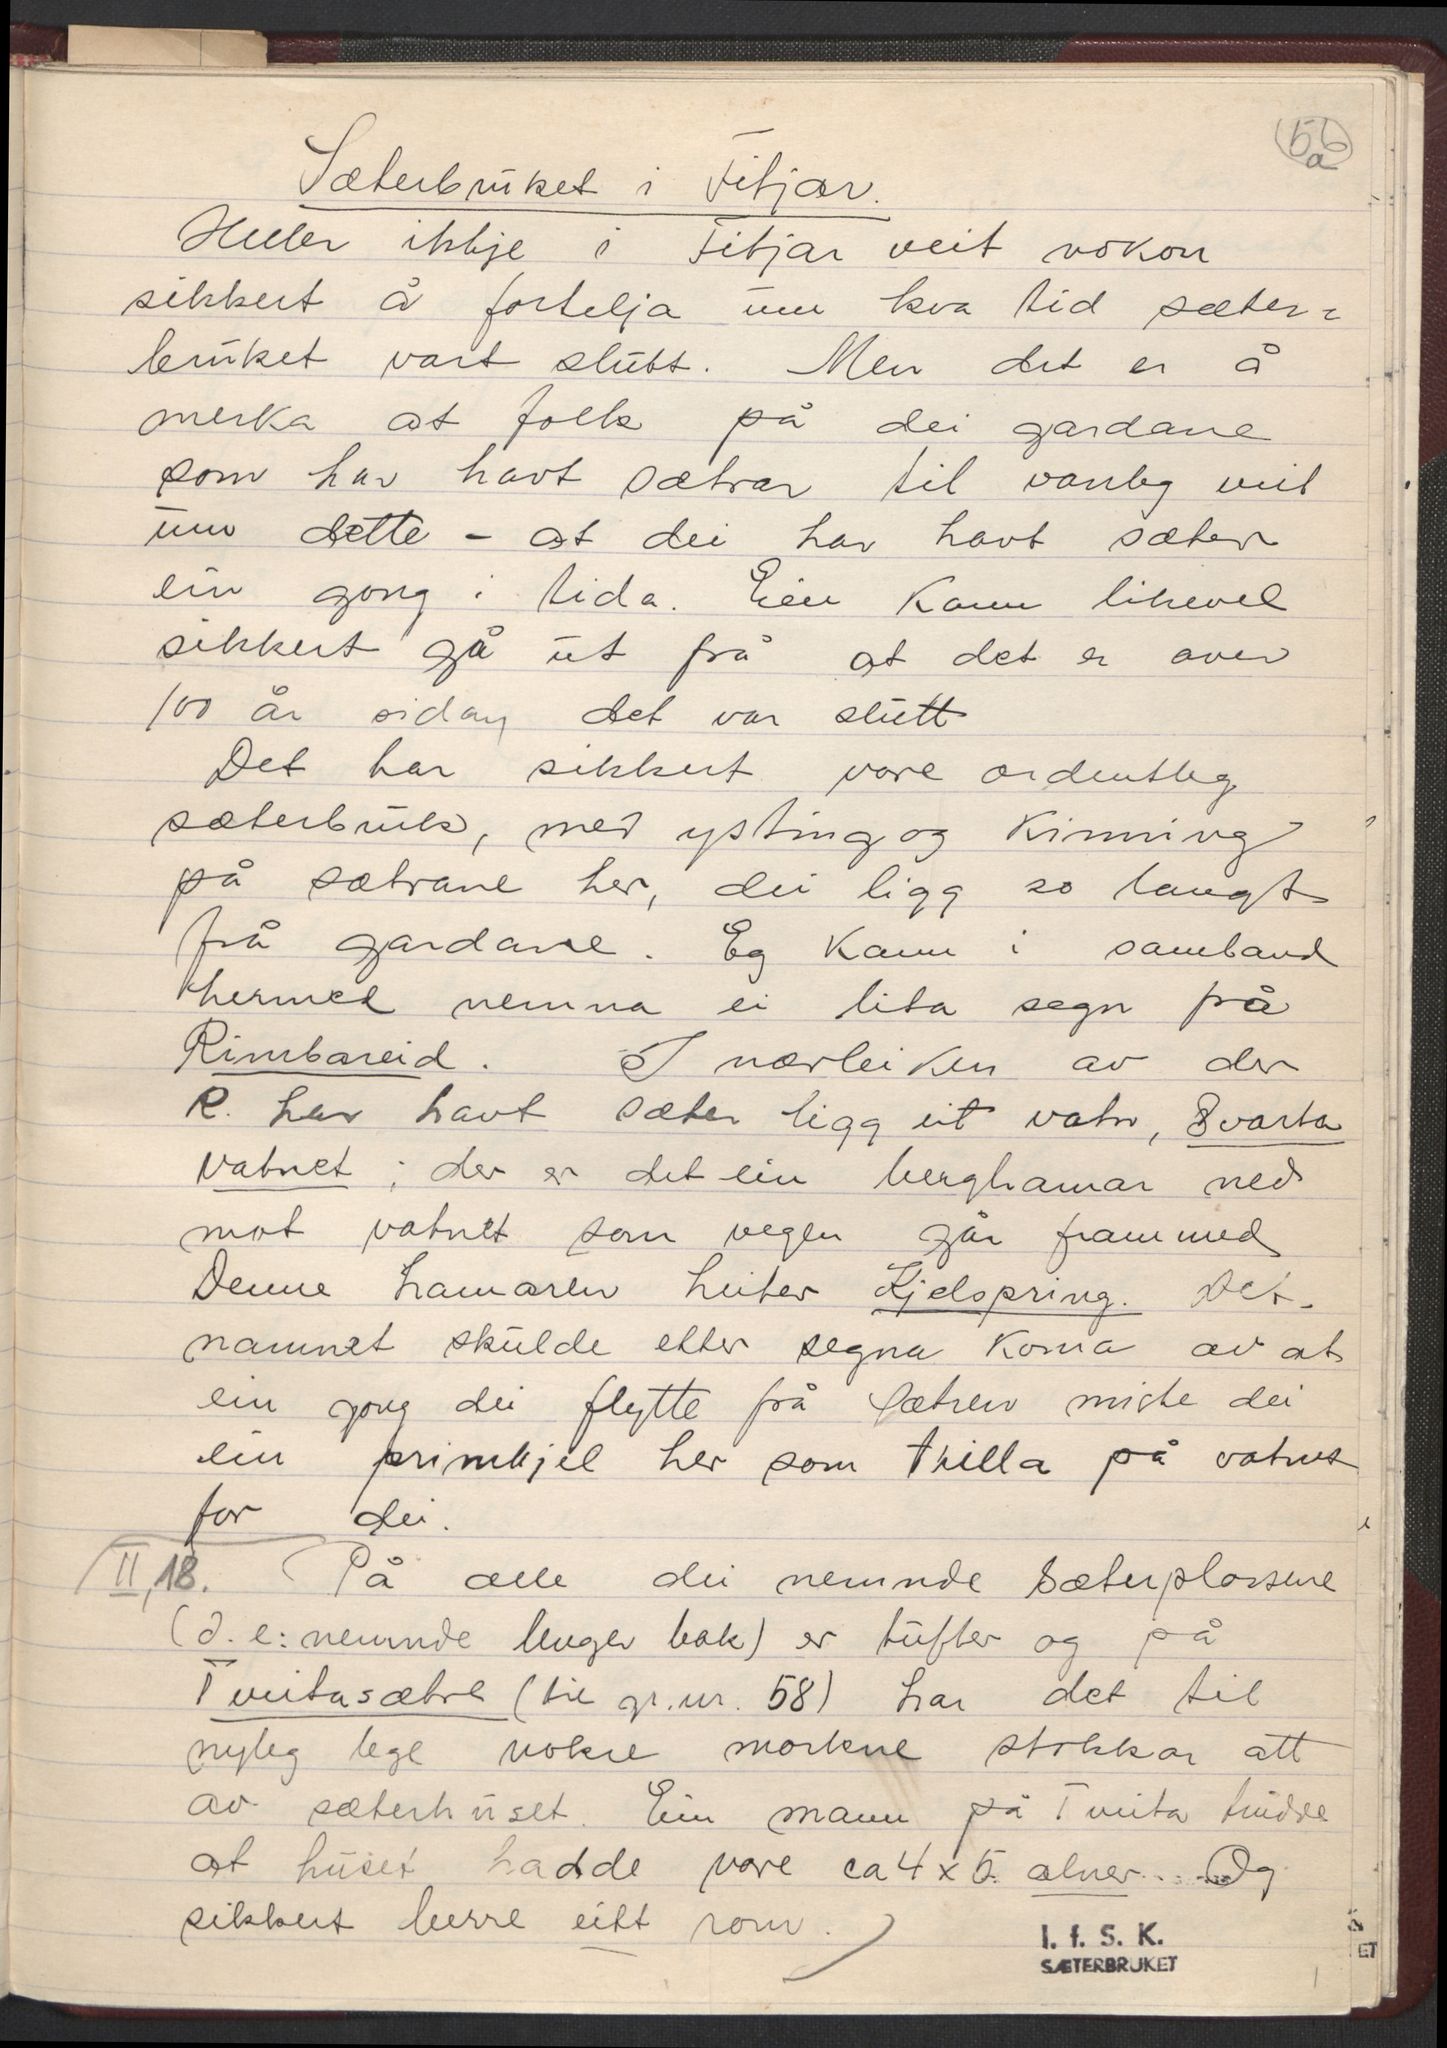 56
a
Sæterbruket i Fitjar.
Heller ikkje i Fitjar veit nokon
sikkert å fortelja um kva tid sæter=
bruket vart slutt. Men det er å
merka at folk på dei gardane
som har havt sætrar til vanleg veit
um dette - at dei har havt sæter
ein gong i tida. Ein kann likevel
sikkert gå ut frå at det er over
100 år sidan det var slutt
Det har sikkert vore ordentleg
sæterbruk, med ysting og kinning
på sætrane her, dei ligg so langt
frå gardane. Eg kann i samband
hermed nemna ei lita segn frå
Rimbareid. I nærleiken av der
R. har havt sæter ligg eit vatn, Svarta
vatnet; der er det ein berghamar ned
mot vatnet som vegen går frammed
Denne hamaren heiter Kjelspring. Det
namnet skulde etter segna koma av at
ein gong dei flytte frå sætren miste dei
ein primkjel her som trilla på vatnet
for dei.
II, 18. På alle dei nemnde sæterplassene
(d. e: nemnde lenger bak) er tufter og på
Tveitasætre (til gr.nr. 58) har det til
nyleg lege nokre morkne stokkar att
av sæterhuset. Ein mann på Tveita trudde
at huset hadde vore ca 4 x 5 alner.... Og
sikkert berre eitt rom.
I. f. S. K.
SÆTERBRUKET
ET